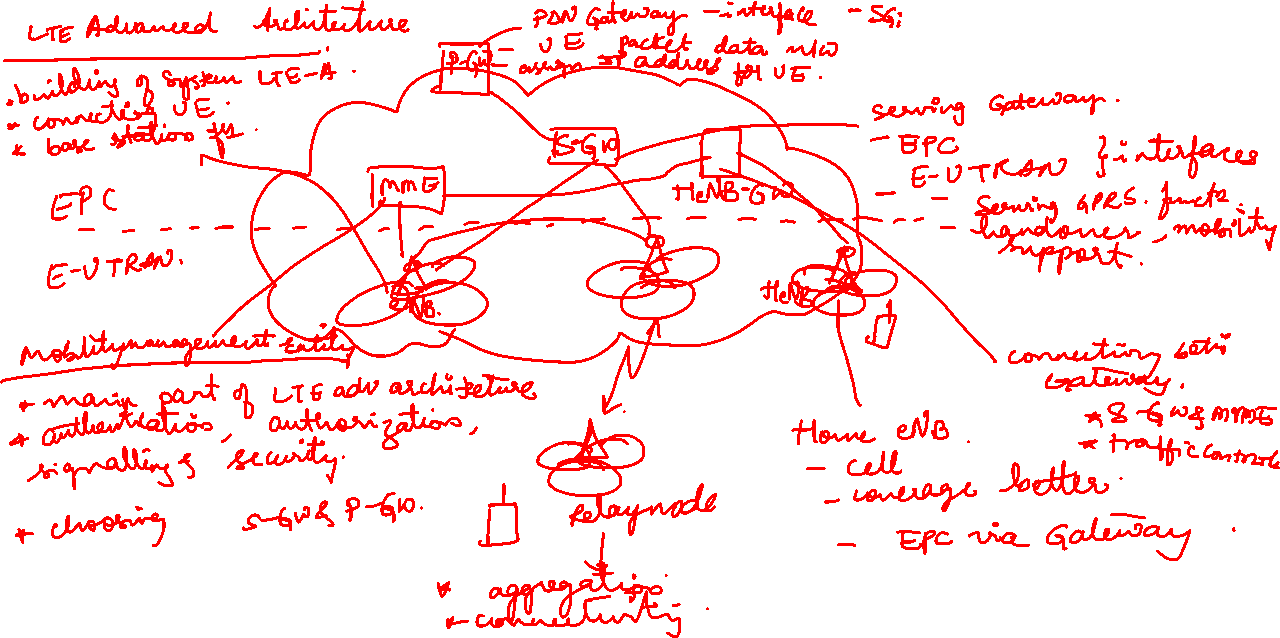 LTE Advanced Architecture
• building of system LTE-A.
* connecting UE.
* base station
PDN Gateway - interface - SGi
- UE packet data n/w
- assign IP address for UE.
P-GW
S-GW
MME
HeNB-GW
EPC
E-UTRAN.
eNB.
HeNB
Serving Gateway.
- EPC
- E-UTRAN } interfaces
- Serving GPRS. functn.
- handover, mobility
support.
Mobility management Entity
* main part of LTE adv architeture
* authentication, authorization,
signalling & security.
* choosing S-GW & P-GW.
Relay node
* aggregation
* connectivity.
Home eNB.
- cell
- coverage better.
- EPC via Gateway.
connecting
Gateway.
* S-GW & MME
* traffic control